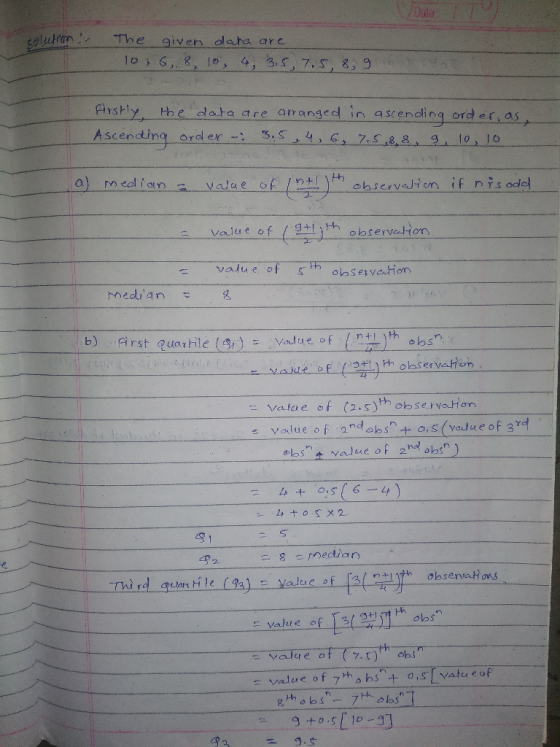 Solution :-  The given data are
10, 6, 8, 10, 4, 3.5, 7.5, 8, 9
Firstly, the data are arranged in ascending order, as,
Ascending order -: 3.5, 4, 6, 7.5, 8, 8, 9, 10, 10
a) median = value of (n+1/2)th observation if n is odd
= value of (9+1/2)th observation
= value of 5th observation
Median = 8
b) First quartile (Q1) = value of (n+1/4)th obsn
= value of (9+1/4)th observation.
= value of (2.5)th observation
= value of 2nd obsn + 0.5 (value of 3rd
obsn + value of 2nd obsn)
= 4 + 0.5 (6 - 4)
= 4 + 0.5 × 2
Q1 = 5
Q2 = 8 = median
Third quartile (Q3) = value of [3(n+1/4)]th observations.
= value of [3(9+1/4)]th obsn
= value of (7.5)th obsn
= value of 7th obsn + 0.5 [value of
8th obsn - 7th obsn]
= 9 + 0.5 [10 - 9]
Q3 = 9.5